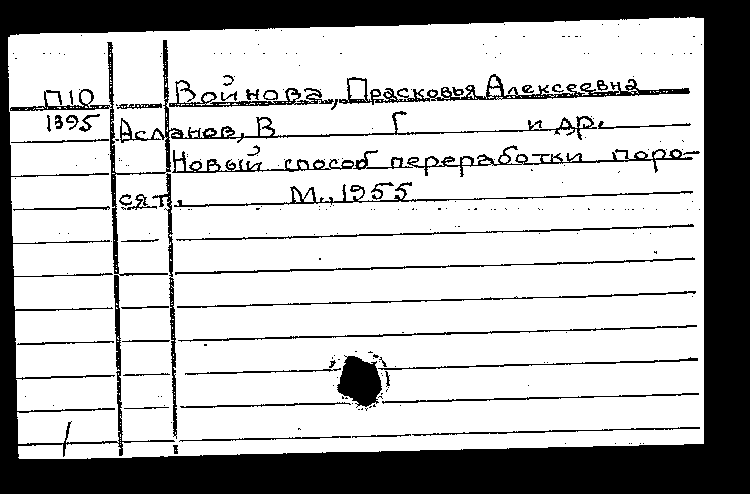 П10 Войнова, Прасковья Алексеевна
1395 Асланов, В Г и др.
Новый способ переработки поро-
сят. М., 1955